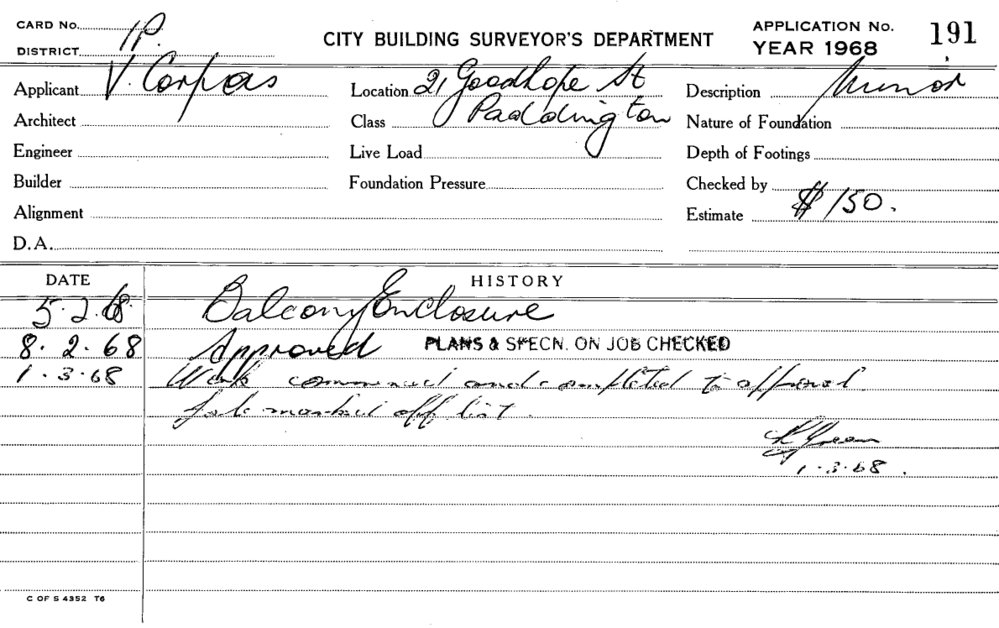 CARD No. 1P.
DISTRICT
CITY BUILDING SURVEYOR'S DEPARTMENT
APPLICATION No. 191
YEAR 1968
Applicant V. Corpas
Location 21 Goodhope St
Description Minor
Architect
Class Paddington
Nature of Foundation
Engineer
Live Load
Depth of Footings
Builder
Foundation Pressure
Checked by
Alignment
Estimate $150.
D.A.
DATE HISTORY
5.2.68 Balcony Enclosure
8.2.68 Approved PLANS & SPECN. ON JOB CHECKED
1.3.68 Work commenced and completed to approval.
Job marked off list.
Green
1.3.68.
C OF S 4352 T6